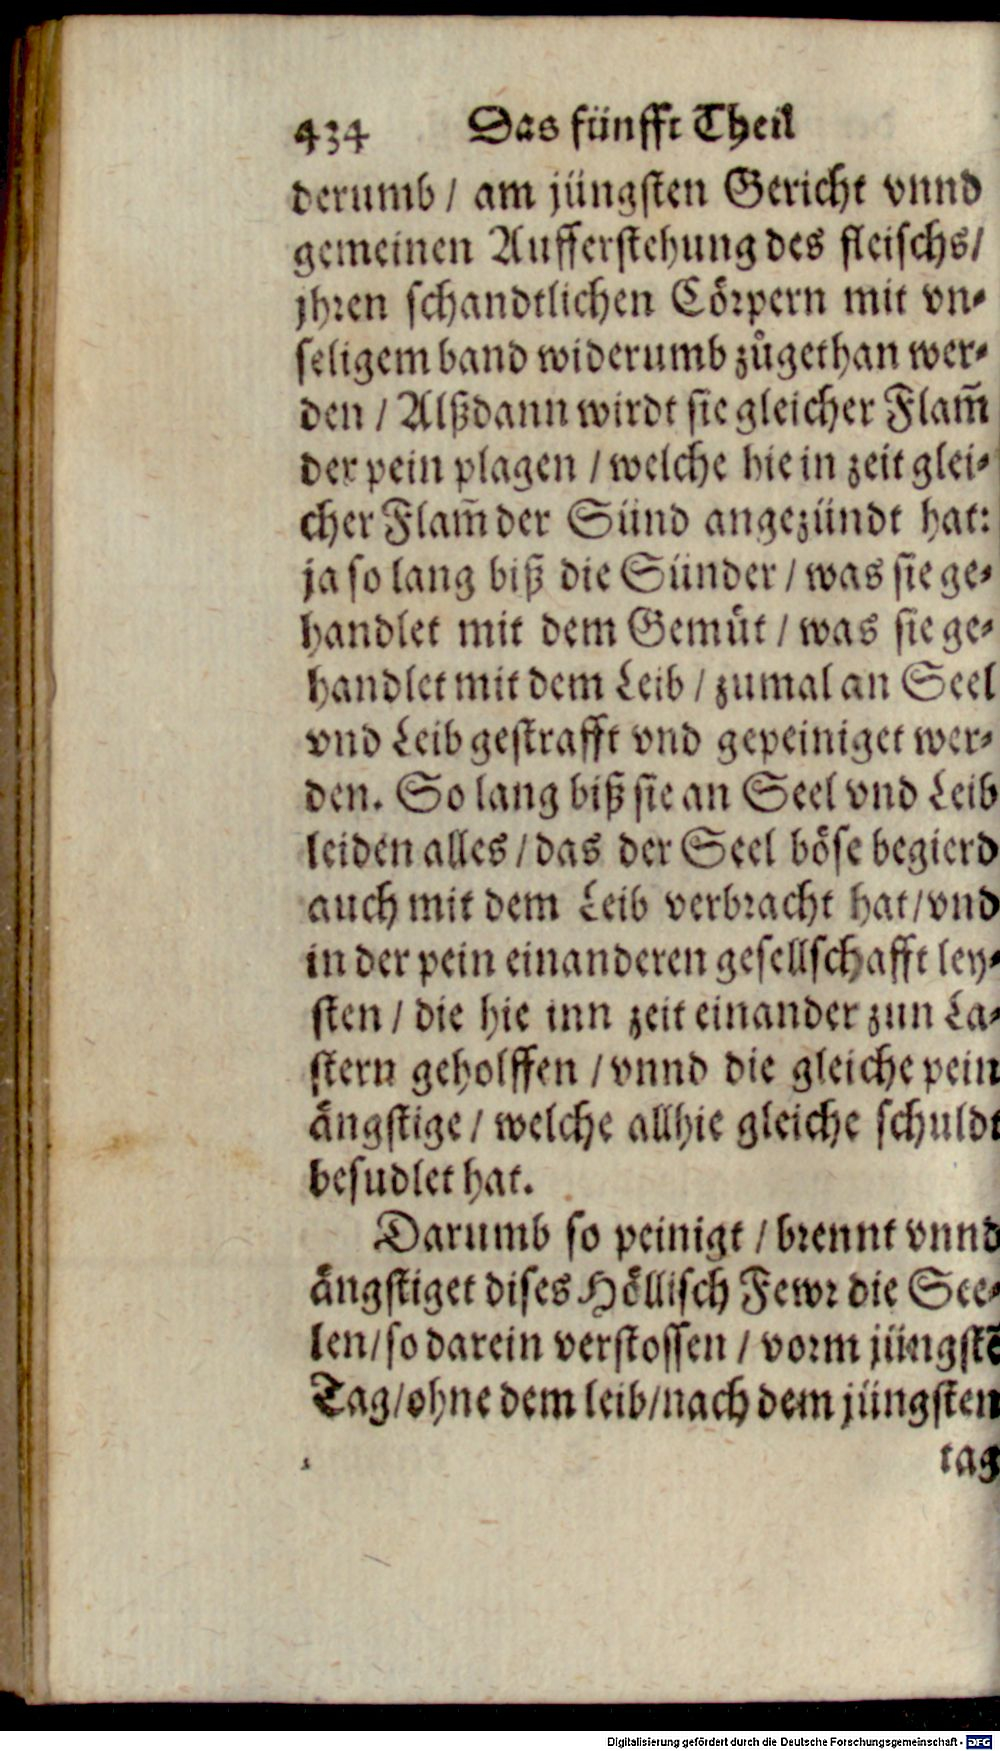 434 Das fünfft Theil
derumb / am jüngsten Gericht vnnd
gemeinen Aufferstehung des fleischs /
jhren schandtlichen Cörpern mit vn-
seligem band widerumb zůgethan wer-
den / Alßdann wirdt sie gleicher Flam̃
der pein plagen / welche hie in zeit glei-
cher Flam̃ der Sünd angezündt hat:
ja so lang biß die Sünder / was sie ge-
handlet mit dem Gemüt / was sie ge-
handlet mit dem Leib / zumal an Seel
vnd Leib gestrafft vnd gepeiniget wer-
den. So lang biß sie an Seel vnd Leib
leiden alles / das der Seel böse begierd
auch mit dem Leib verbracht hat / vnd
in der pein einanderen gesellschafft ley-
sten / die hie inn zeit einander zun La-
stern geholffen / vnnd die gleiche pein
ängstige / welche allhie gleiche schuldt
besudlet hat.
Darumb so peinigt / brennt vnnd
ängstiget dises Höllisch Fewr die See-
len / so darein verstossen / vorm jüngstẽ
Tag / ohne dem leib / nach dem jüngsten
tag
Digitalisierung gefördert durch die Deutsche Forschungsgemeinschaft - DFG